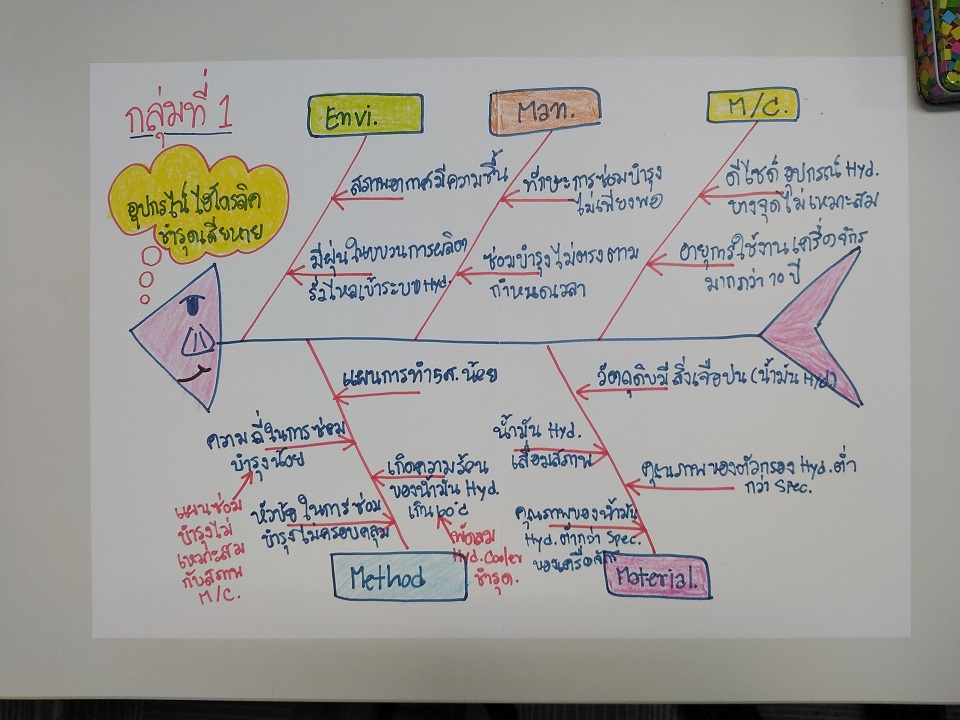 กลุ่มที่ 1
อุปกรณ์ไฮโดรลิค
ชำรุดเสียหาย
Envi.
สภาพอากาศมีความชื้น
มีฝุ่นในขบวนการผลิต
รั่วไหลเข้าระบบ Hyd.
Man.
ทักษะการซ่อมบำรุง
ไม่เพียงพอ
ซ่อมบำรุงไม่ตรงตาม
กำหนดเวลา
M/C.
ดีไซด์ อุปกรณ์ Hyd.
บางจุดไม่เหมาะสม
อายุการใช้งานเครื่องจักร
มากกว่า 10 ปี
แผนการทำ5ส. น้อย
ความถี่ในการซ่อม
บำรุงน้อย
แผนซ่อม
บำรุงไม่
เหมาะสม
กับสภาพ
M/C.
หัวข้อในการซ่อม
บำรุงไม่ครอบคลุม
เกิดความร้อน
ของน้ำมัน Hyd.
เกิน 60°c
พัดลม
Hyd.Cooler
ชำรุด.
Method
วัตถุดิบมีสิ่งเจือปน (น้ำมัน Hyd)
น้ำมัน Hyd.
เสื่อมสภาพ
คุณภาพของตัวกรอง Hyd. ต่ำ
กว่า Spec.
คุณภาพของน้ำมัน
Hyd. ต่ำกว่า Spec.
ของเครื่องจักร
Material.